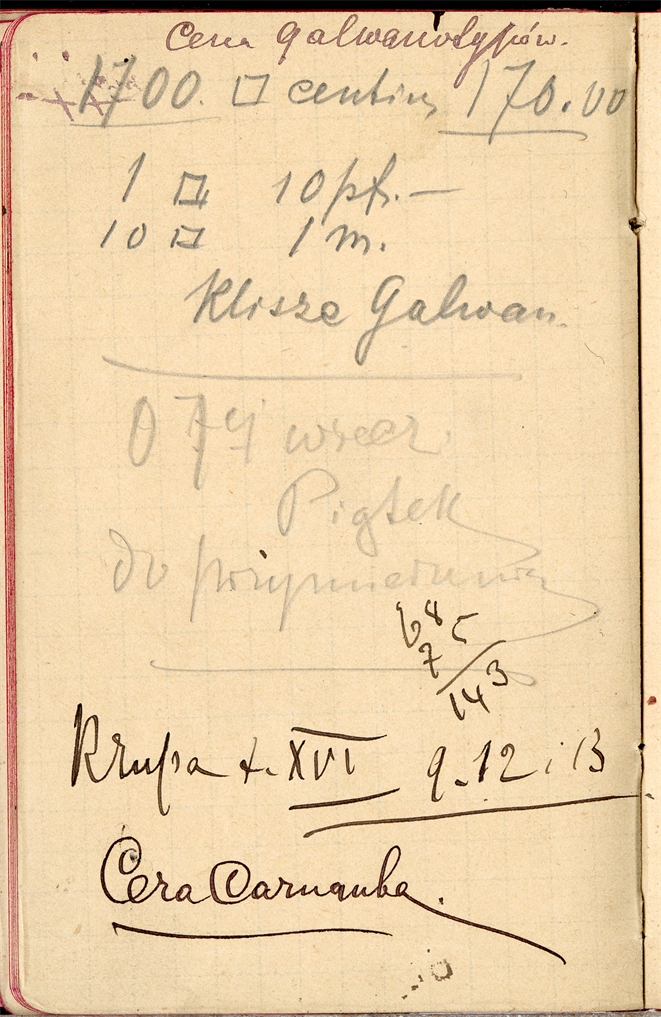 Cena galwanotypów.
1700. □ centim, 170.00
1 □ 10 pf. —
10 □ 1 m.
Klisze Galwan.
O 7 wiecz.
Piątek
do
68
75
143
Krupa t. XVI 9. 12 i 13
Cera Carnauba.